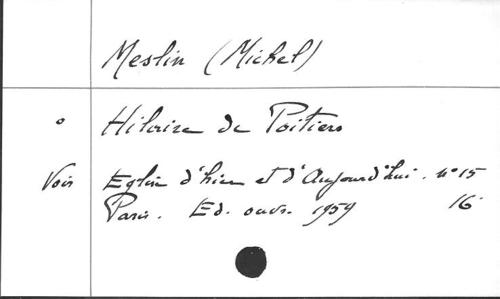 Meslin (Michel)
° Hilaire de Poitiers
Voir Eglise d'hier et d'Aujourd'hui. n° 15
Paris. Ed. ouvr. 1959 16°